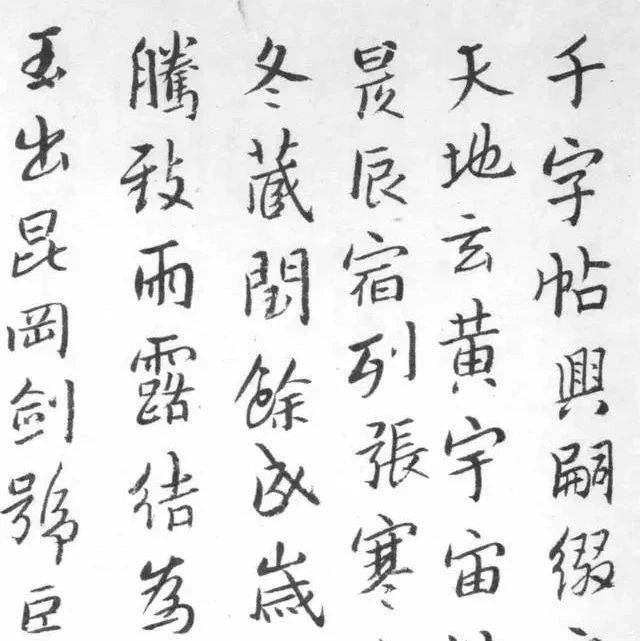 千字帖興嗣綴
天地玄黄宇宙
昃辰宿列張寒
冬藏閏餘成歲
騰致雨露結為
玉出昆岡劍號巨